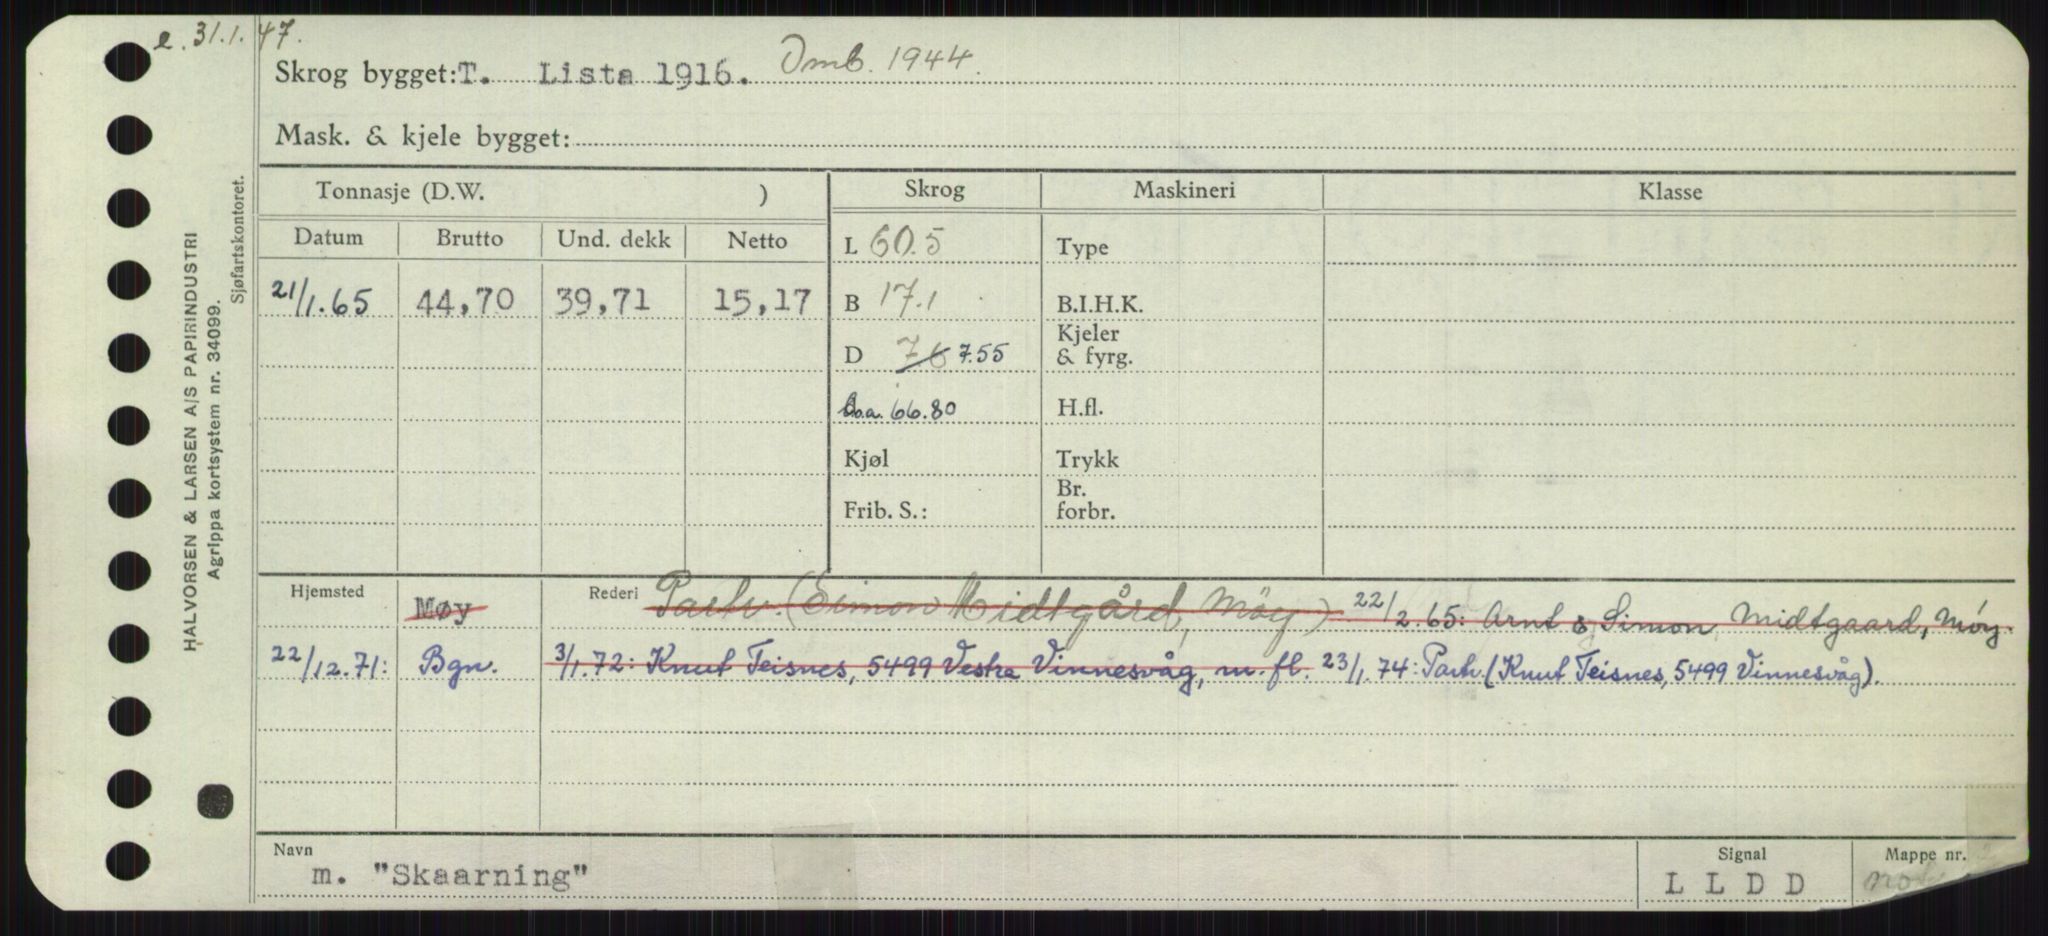 e. 31.1.47.
Skrog bygget: T. Lista 1916. Omb. 1944.
Mask. & kjele bygget:
Tonnasje (D.W. ) Skrog Maskineri Klasse
Datum Brutto Und. dekk Netto L 60.5 Type
21/1.65 44,70 39,71 15,17 B 17.1 B.I.H.K.
D 76 7.55 Kjeler & fyrg.
L.o.a. 66.80 H.fl.
Kjøl Trykk
Frib. S.: Br. forbr.
Hjemsted Møy Rederi Partr. (Simon Midtgård, Möy) 22/2.65: Arnt & Simon Midtgaard, Møy.
22/12.71: Bgn. 3/1.72: Knut Teisnes, 5499 Vestre Vinnesvåg, m.fl. 23/1.74: Partr. (Knut Teisnes, 5499 Vinnesvåg).
Navn Signal Mappe nr.
m. "Skaarning" L L D D
HALVORSEN & LARSEN A/S PAPIRINDUSTRI
Agrippa kortsystem nr. 34099.
Sjøfartskontoret.